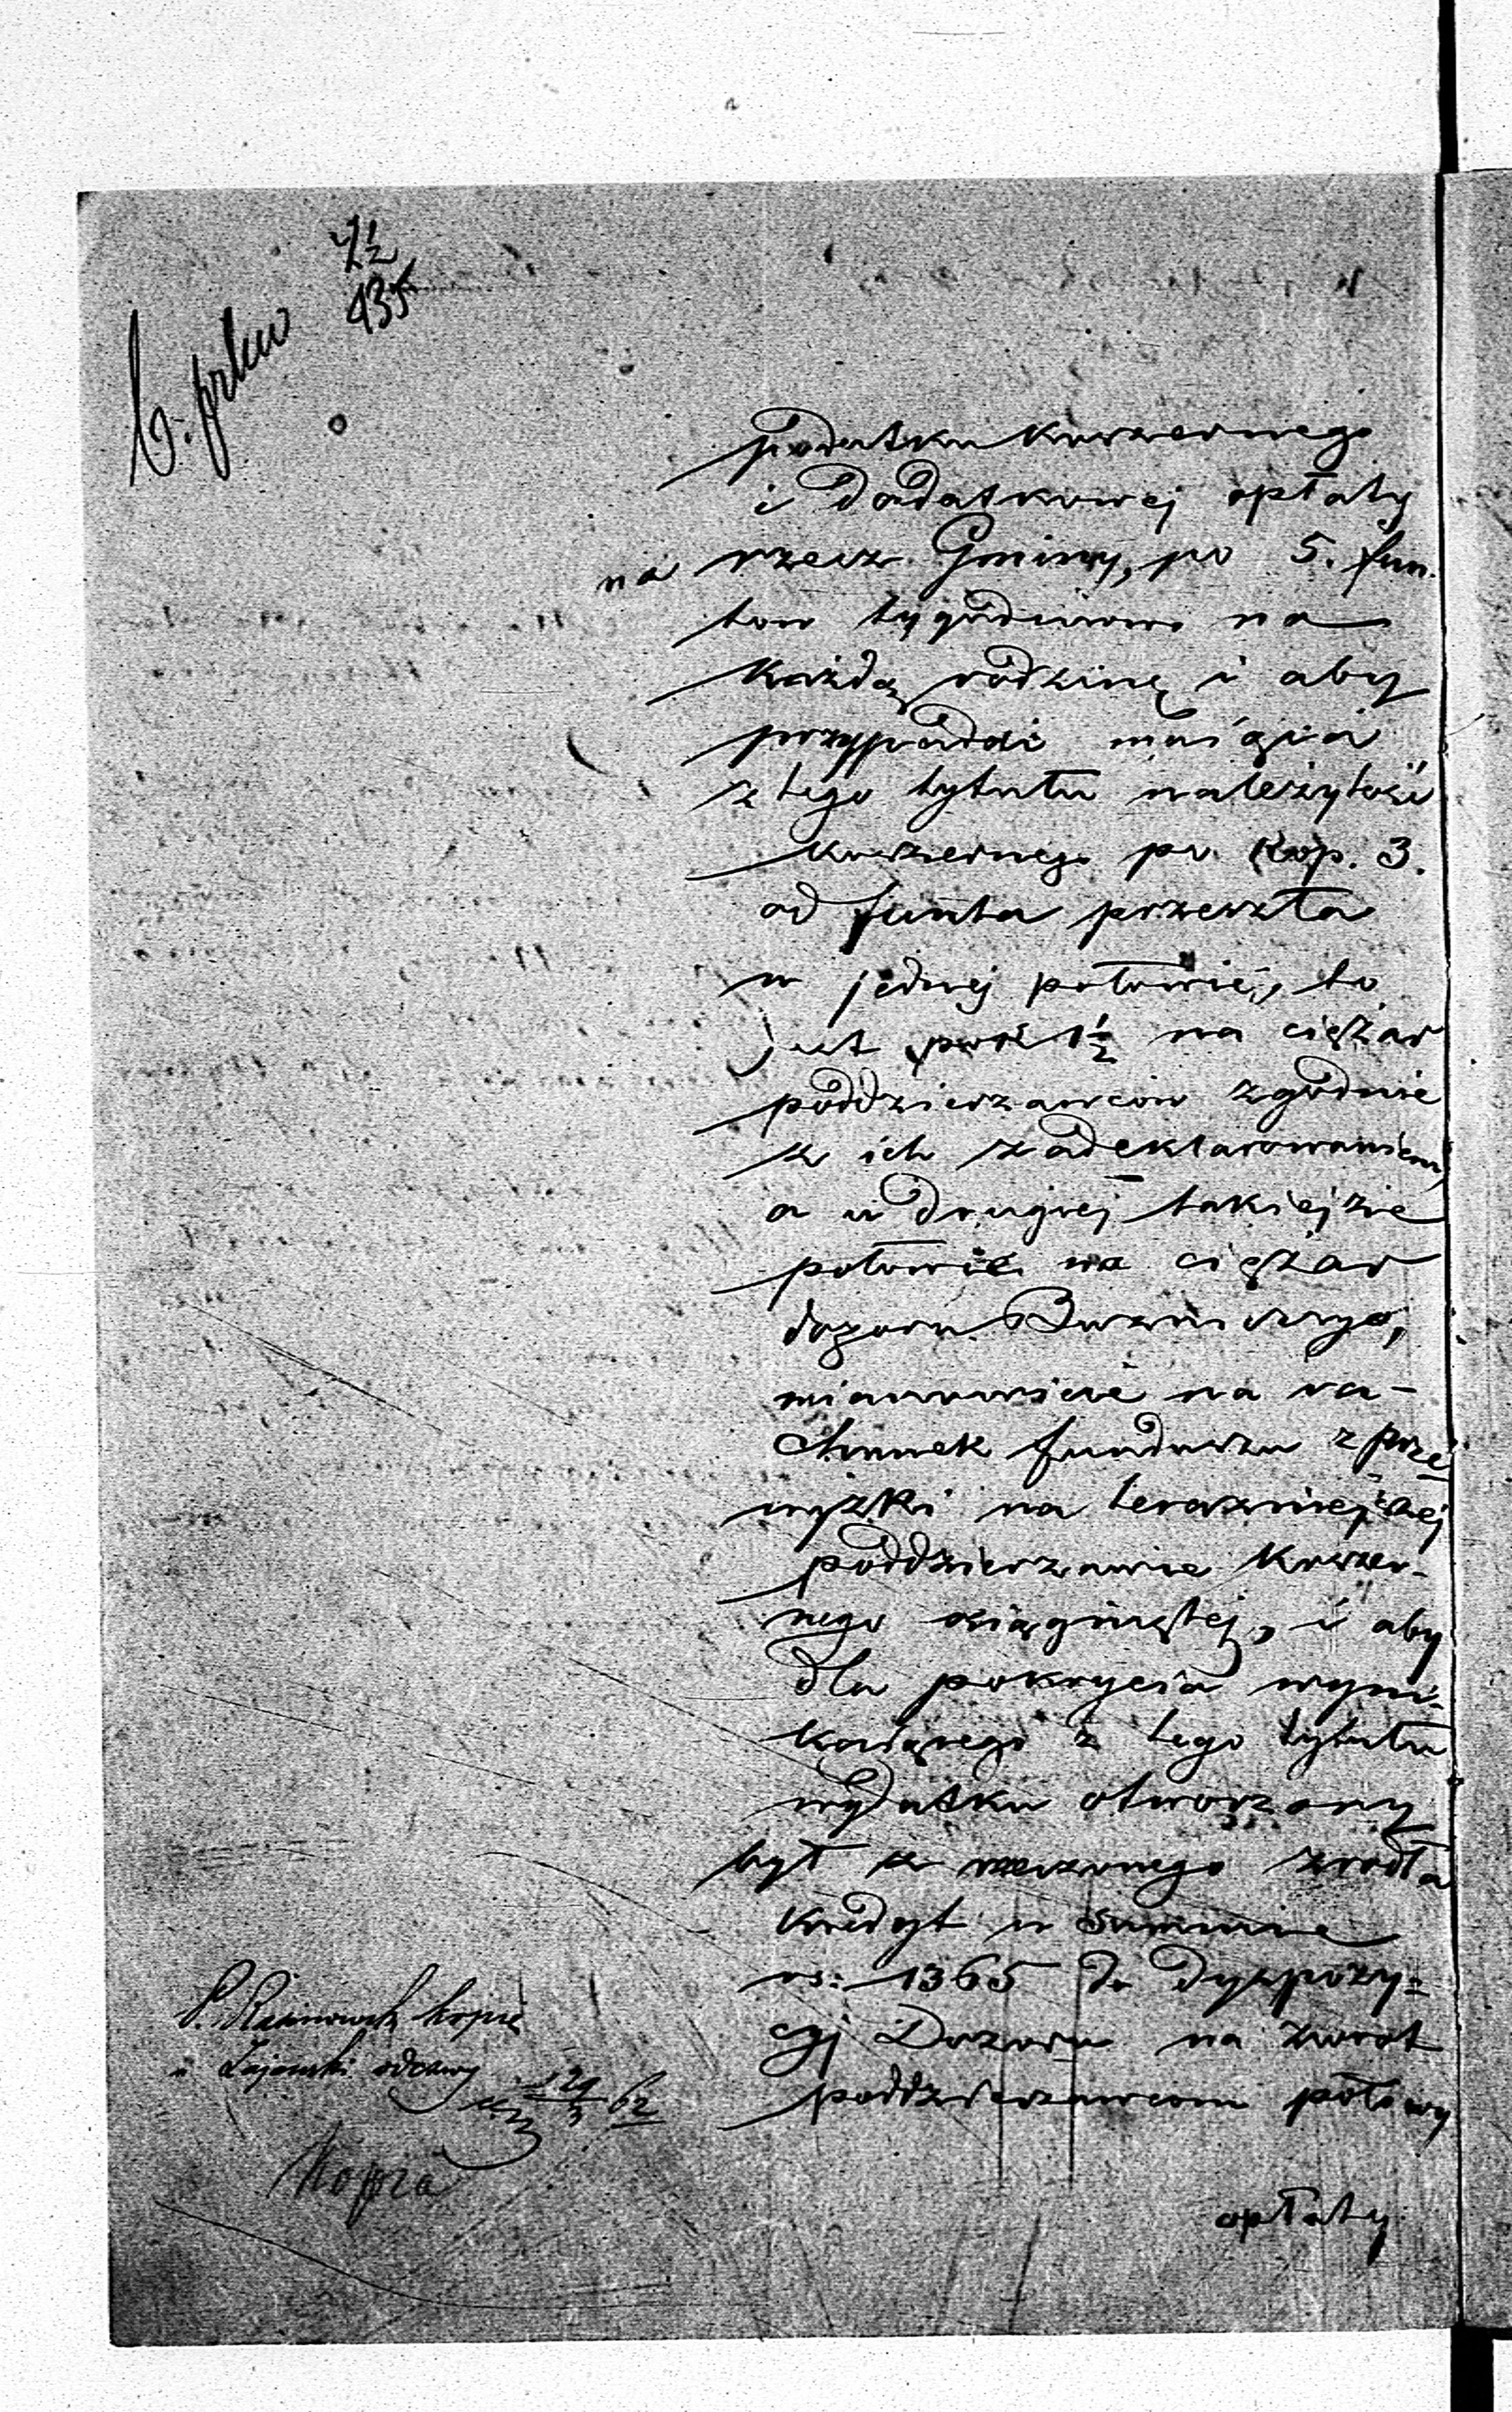 435
podatku koszernego
i dodatkowej opłaty
na rzecz Gminy, po 5. fun-
tow tygodniowo na
każdą rodzinę i aby
przypadać mająca
z tego tytułu należytość
koszernego po kop. 3.
od funta przeszła
w jednej połowie, to
jest po k 1½ na ciężar
poddzierzawcow zgodnie
z ich zadeklarowaniem,
a w drugiej takiejże
połowie na ciężar
dozoru Bożniczego,
mianowicie na ra-
chunek funduszu z prze-
wyżki na terazniejszej
poddzierzawie koszer-
nego osiągniętej, i aby
dla pokrycia wyni-
kaiącego z tego tytułu
wydatku otworzony
był z rzeczonego zrodła
kredyt w summie
rs: 1365 do dyspozy-
cyi Dozoru na zwrot
poddzierzawcom połowy
opłaty
kopie
odezwy 29/3 62
Kopia